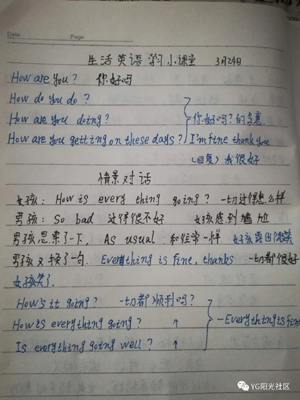 Date Page
生活英语的小课堂 3月24日
How are you? 你好吗
How do you do?
How are you doing? 你好吗?的意思
How are you getting on these days? I'm fine thank you
(回复) 我很好
情景对话
女孩: How is every thing going? 一切过得怎么样
男孩: So bad 过得很不好 女孩感到尴尬
男孩思索了一下, As usual 和往常一样 女孩露出微笑
男孩又接了一句, Everything is fine, thanks 一切都很好
女孩笑了
How's it going? 一切都顺利吗?
How is everything going? ↑ -Everything is fine
Is everything going well? ↑
YG阳光社区